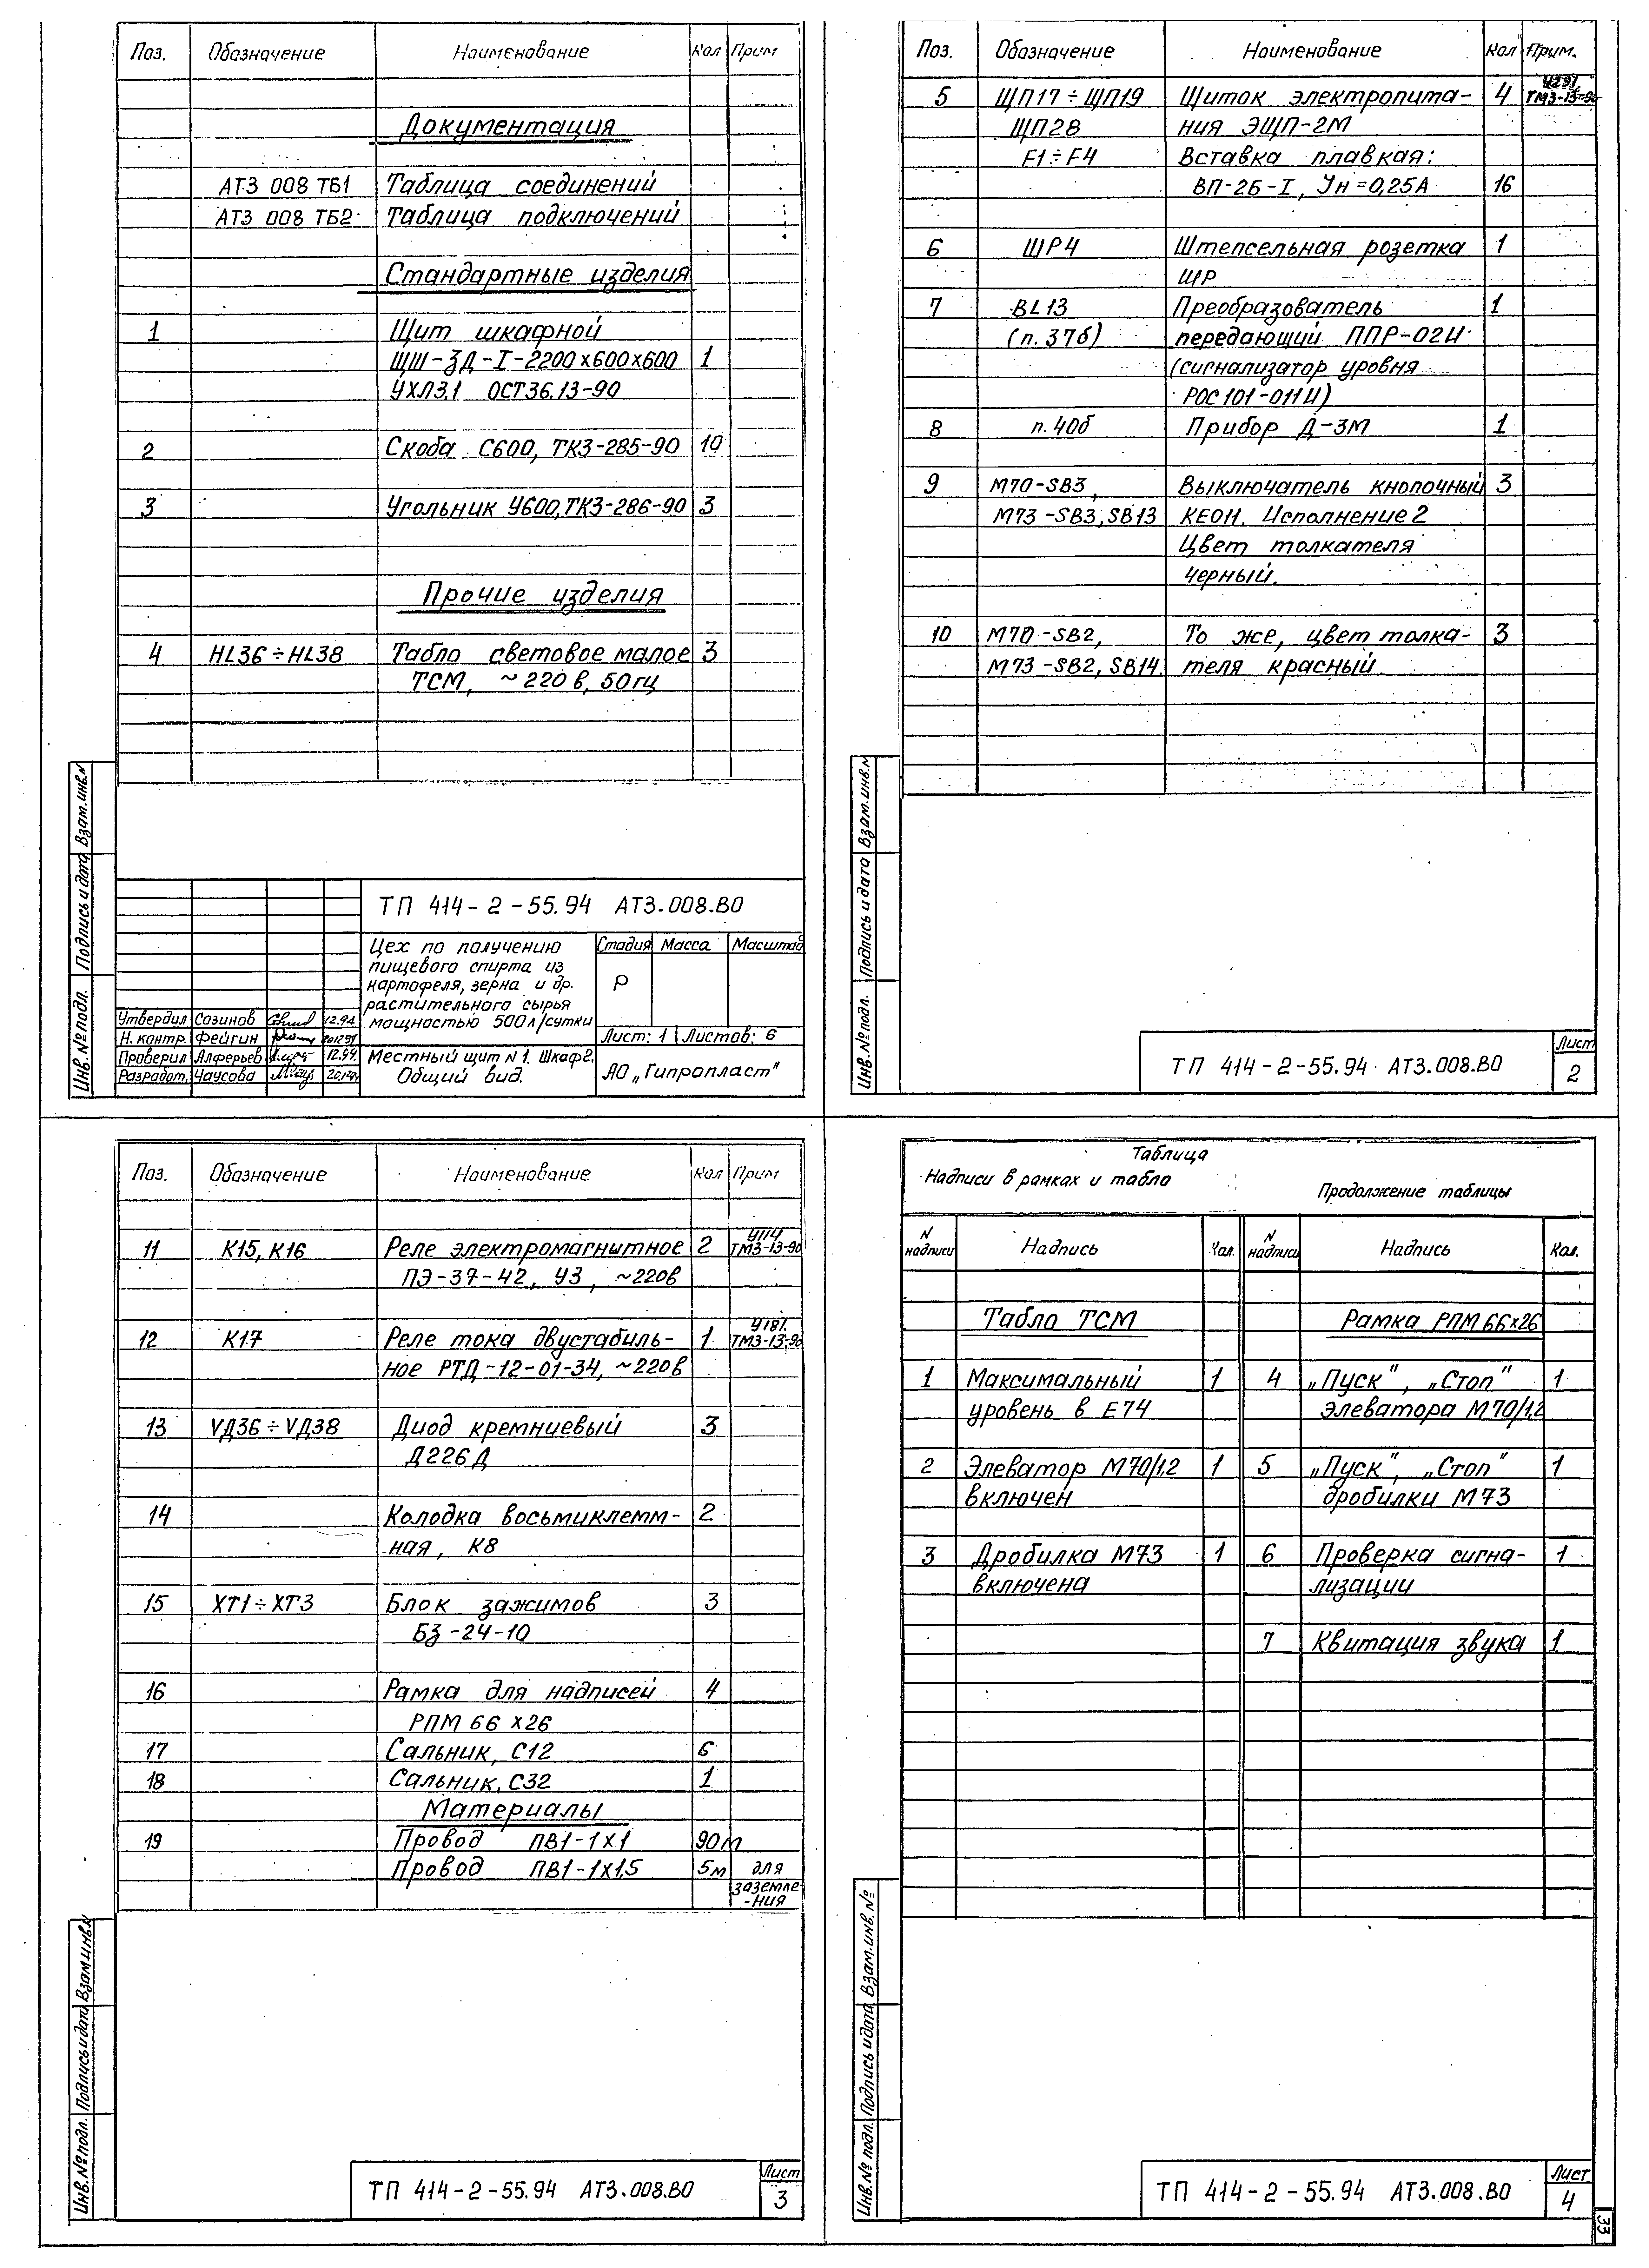 Поз. Обозначение Наименование Кол Прим
Документация
АТЗ 008 ТБ1 Таблица соединений
АТЗ 008 ТБ2 Таблица подключений
Стандартные изделия
1 Щит шкафной
ЩШ-ЗД-I-2200х600х600 1
УХЛ3.1 ОСТ36.13-90
2 Скоба С600, ТК3-285-90 10
3 Угольник У600, ТК3-286-90 3
Прочие изделия
4 HL36÷HL38 Табло световое малое 3
ТСМ, ~220в, 50гц
Взам.инв.№
Подпись и дата
Инв.№ подл.
ТП 414-2-55.94 АТЗ.008.ВО
Цех по получению
пищевого спирта из
картофеля, зерна и др.
растительного сырья
мощностью 500л/сутки
Стадия Масса Масштаб
Р
Лист: 1 Листов: 6
Утвердил Созинов 12.94
Н. контр. Фейгин
Проверил Алферьев 12.94.
Разработ. Чаусова
Местный щит N1. Шкаф2.
Общий вид.
АО „Гипропласт"
Поз. Обозначение Наименование Кол Прим.
5 ЩП17÷ЩП19 Щиток электропита- 4 ТМ3-13-90
ЩП28 ния ЭЩП-2М
F1÷F4 Вставка плавкая:
ВП-2Б-I, Ун=0,25А 16
6 ШР4 Штепсельная розетка 1
ШР
7 BL13 Преобразователь 1
(п. 37б) передающий ППР-02И
(сигнализатор уровня
РОС101-011И)
8 п.40б Прибор Д-3М 1
9 М70-SB3, Выключатель кнопочный 3
М73-SB3, SB13 КЕ011. Исполнение 2
Цвет толкателя
черный.
10 М70-SB2, То же, цвет толка- 3
М73-SB2, SB14. теля красный.
Взам.инв.№
Подпись и дата
Инв.№ подл.
ТП 414-2-55.94 АТЗ.008.ВО
Лист
2
Поз. Обозначение Наименование Кол Прим
11 К15, К16 Реле электромагнитное 2 У114 ТМ3-13-90
ПЭ-37-42, У3, ~220в
12 К17 Реле тока двустабиль- 1 У181. ТМ3-13-90
ное РТД-12-01-34, ~220в
13 VД36÷VД38 Диод кремниевый 3
Д226Д
14 Колодка восьмиклемм- 2
ная, К8
15 ХТ1÷ХТ3 Блок зажимов 3
БЗ-24-10
16 Рамка для надписей 4
РПМ 66х26
17 Сальник, С12 6
18 Сальник, С32 1
Материалы
19 Провод ПВ1-1х1 90м
Провод ПВ1-1х1,5 5м для
заземле-
-ния
Взам.инв.№
Подпись и дата
Инв.№ подл.
ТП 414-2-55.94 АТЗ.008.ВО
Лист
3
Таблица
Надписи в рамках и табло
Продолжение таблицы
N надписи Надпись Кол. N надписи Надпись Кол.
Табло ТСМ Рамка РПМ 66х26
1 Максимальный 1 4 „Пуск", „Стоп" 1
уровень в Е74 элеватора М70/1,2
2 Элеватор М70/1,2 1 5 „Пуск", „Стоп" 1
включен дробилки М73
3 Дробилка М73 1 6 Проверка сигна- 1
включена лизации
7 Квитация звука 1
Взам.инв.№
Подпись и дата
Инв.№ подл.
ТП 414-2-55.94 АТЗ.008.ВО
Лист
4
33